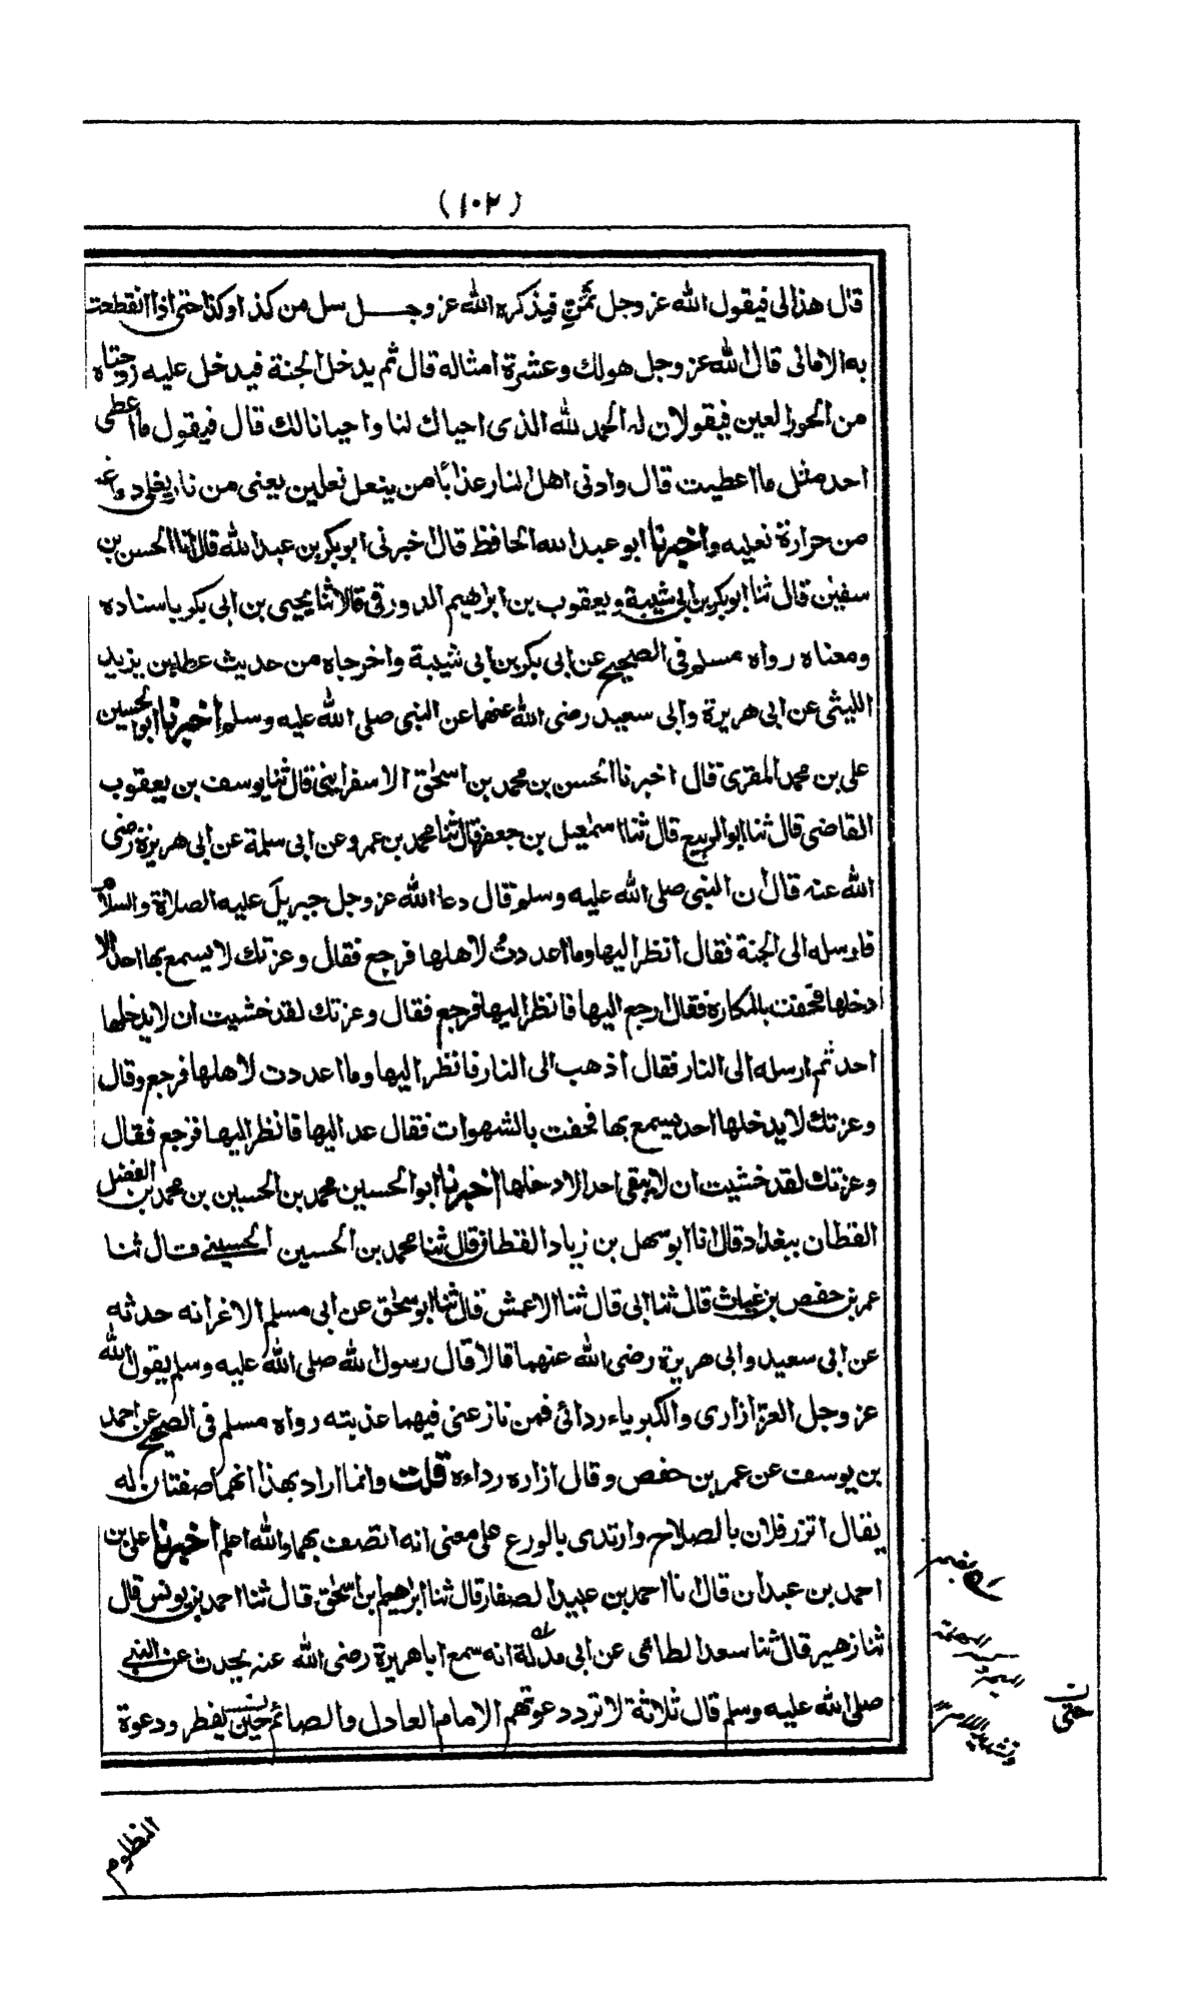 (١٠٢)
قال هذا لى فيقول الله عز وجل تمن فيذكره الله عز وجل سل من كذا وكذا حتى اذا انقطعت
به الامانى قال الله عز وجل هو لك وعشرة امثاله قال ثم يدخل الجنة فيدخل عليه زوجتاه
من الحور العين فيقولان له الحمد لله الذى احياك لنا واحيانا لك قال فيقول ما اعطى
احد مثل ما اعطيت قال وادنى اهل النار عذابا من ينعل نعلين يعنى من نار يغلى دماغه
من حرارة نعليه واخبرنا ابو عبد الله الحافظ قال اخبرنى ابو بكر بن عبد الله قال انا الحسن بن
سفين قال ثنا ابو بكر بن ابى شيبة ويعقوب بن ابراهيم الدورقى قالا ثنا يحيى بن ابى بكر باسناده
ومعناه رواه مسلم فى الصحيح عن ابى بكر بن ابى شيبة واخرجاه من حديث عطاء بن يزيد
الليثى عن ابى هريرة وابى سعيد رضى الله عنهما عن النبى صلى الله عليه وسلم اخبرنا ابو الحسين
على بن محمد المقرى قال اخبرنا الحسن بن محمد بن اسحق الاسفراينى قال ثنا يوسف بن يعقوب
القاضى قال ثنا ابو الربيع قال ثنا اسمعيل بن جعفر قال ثنا محمد بن عمرو عن ابى سلمة عن ابى هريرة رضى
الله عنه قال ان النبى صلى الله عليه وسلم قال دعا الله عز وجل جبريل عليه الصلاة والسلام
فارسله الى الجنة فقال انظر اليها وما اعددت لاهلها فرجع فقال وعزتك لا يسمع بها احد الا
دخلها فحفت بالمكاره فقال ارجع اليها فانظر اليها فرجع فقال وعزتك لقد خشيت ان لا يدخلها
احد ثم ارسله الى النار فقال اذهب الى النار فانظر اليها وما اعددت لاهلها فرجع وقال
وعزتك لا يدخلها احد يسمع بها فحفت بالشهوات فقال عد اليها فانظر اليها فرجع فقال
وعزتك لقد خشيت ان لا يبقى احد الا دخلها اخبرنا ابو الحسين محمد بن الحسين بن محمد بن الفضل
القطان ببغداد قال انا ابو سهل بن زياد القطان قال ثنا محمد بن الحسين الحسينى قال ثنا
عمر بن حفص بن غياث قال ثنا ابى قال ثنا الاعمش قال ثنا ابو اسحق عن ابى مسلم الاغر انه حدثه
عن ابى سعيد وابى هريرة رضى الله عنهما قالا قال رسول الله صلى الله عليه وسلم يقول الله
عز وجل العز ازارى والكبرياء ردائى فمن نازعنى فيهما عذبته رواه مسلم فى الصحيح عن احمد
بن يوسف عن عمر بن حفص وقال ازاره رداءه قلت وانما اراد بهذا انهما صفتان له
يقال اتزر فلان بالصلاح وارتدى بالورع على معنى انه اتصف بهما والله اعلم اخبرنا على بن
احمد بن عبدان قال انا احمد بن عبيد الصفار قال ثنا ابراهيم بن اسحق قال ثنا احمد بن يونس قال
ثنا زهير قال ثنا سعد الطائى عن ابى مدلة انه سمع ابا هريرة رضى الله عنه يحدث عن النبى
صلى الله عليه وسلم قال ثلاثة لا ترد دعوتهم الامام العادل والصائم حين يفطر ودعوة
المظلوم